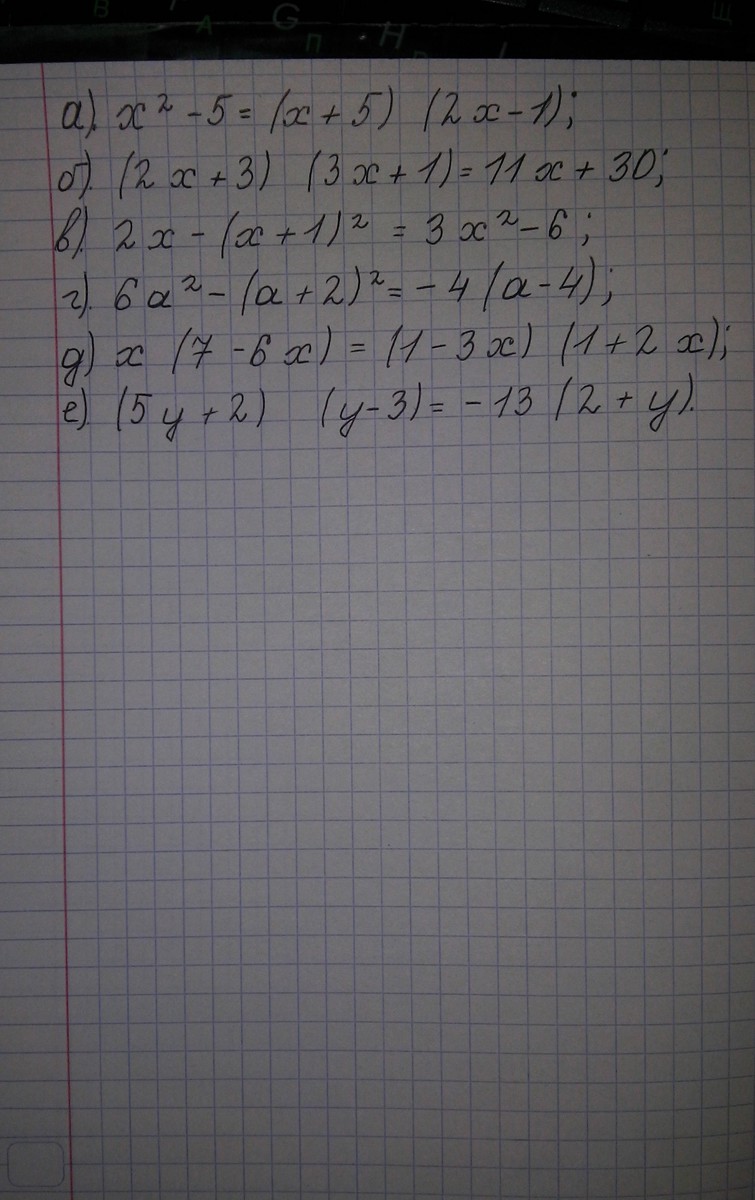 В А G П Н Щ
а). x² - 5 = (x + 5) (2x - 1);
б). (2x + 3) (3x + 1) = 11x + 30;
в). 2x - (x + 1)² = 3x² - 6;
г). 6a² - (a + 2)² = - 4 (a - 4);
д) x (7 - 6x) = (1 - 3x) (1 + 2x);
е). (5y + 2) (y - 3) = - 13 (2 + y).